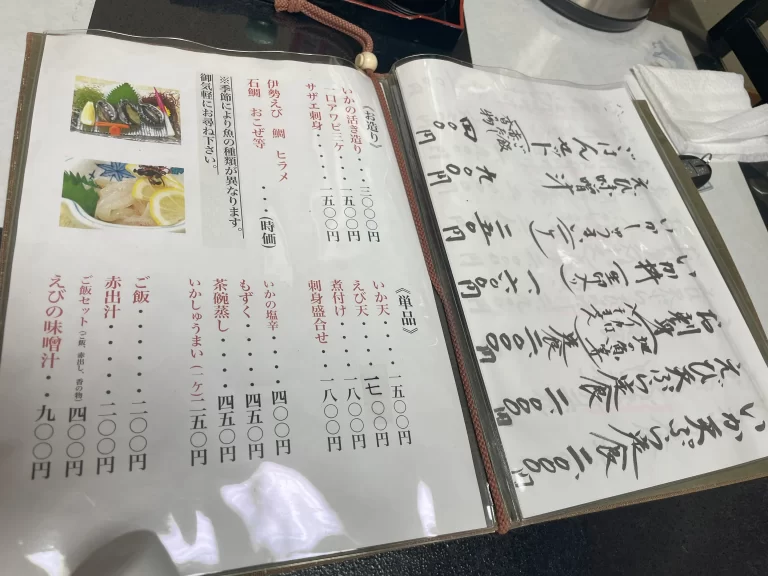 いか天ぷら定食
えび天ぷら定食
いか丼
いかしゅうまい 二五〇円
えび味噌汁 九〇〇円
ごはんセット 四〇〇円
《お造り》
いかの活き造り・・・三〇〇〇円
一口アワビ三ケ・・・一五〇〇円
サザエ刺身・・・・・一五〇〇円
伊勢えび 鯛 ヒラメ
石鯛 おこぜ等 ・・・(時価)
※季節により魚の種類が異なります。
御気軽にお尋ね下さい。
《単品》
いか天・・・・一五〇〇円
えび天・・・・一七〇〇円
煮付け・・・・一八〇〇円
刺身盛合せ・・一八〇〇円
いかの塩辛・・・・四〇〇円
もずく・・・・・四五〇円
茶碗蒸し・・・・四五〇円
いかしゅうまい(一ケ)二五〇円
ご飯・・・・・・二〇〇円
赤出汁・・・・・二〇〇円
ご飯セット(ご飯、赤出し、香の物)四〇〇円
えびの味噌汁・・九〇〇円